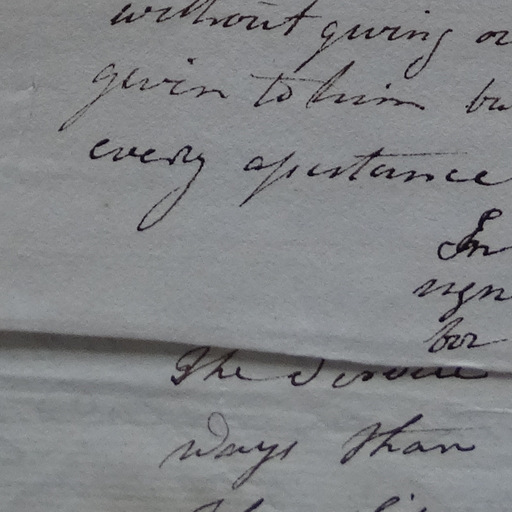 without giving or
givin to him bu
every apistance
In
sign
bor
The Service
Days than